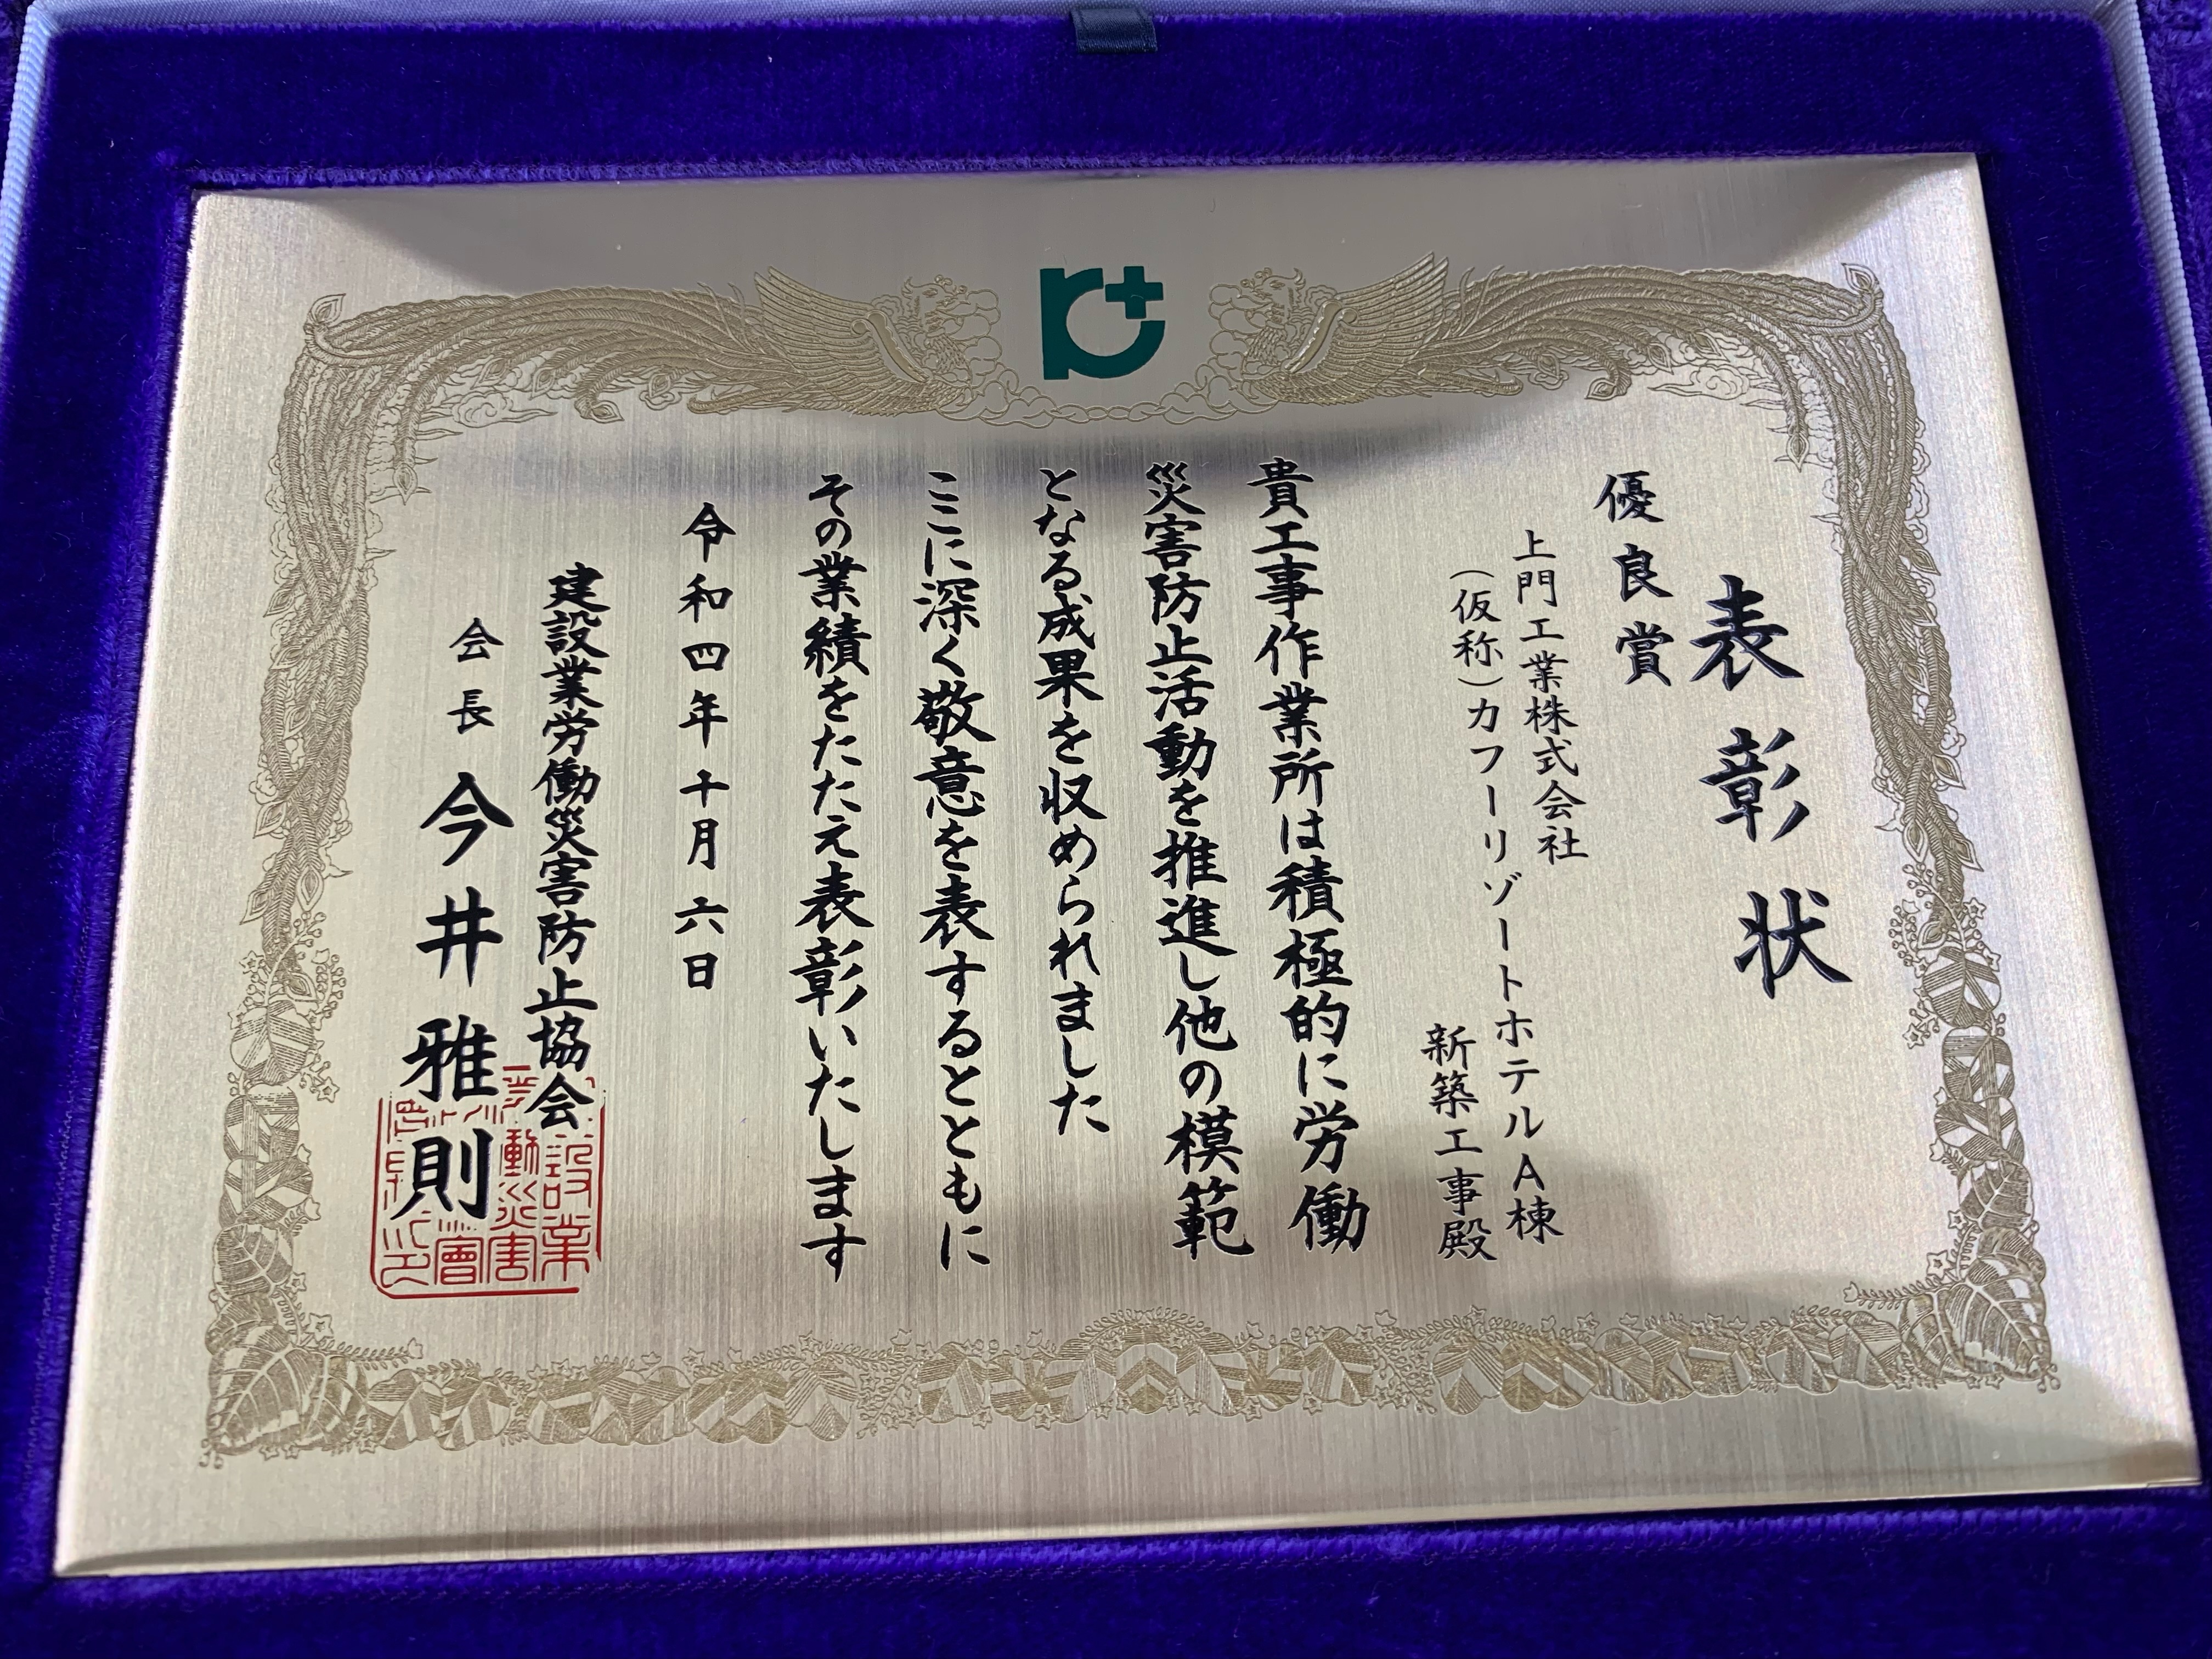 表彰状
優良賞
上門工業株式会社
（仮称）カフーリゾートホテルA棟
新築工事殿
貴工事作業所は積極的に労働
災害防止活動を推進し他の模範
となる成果を収められました
ここに深く敬意を表するとともに
その業績をたたえ表彰いたします
令和四年十月六日
建設業労働災害防止協会
会長 今井雅則